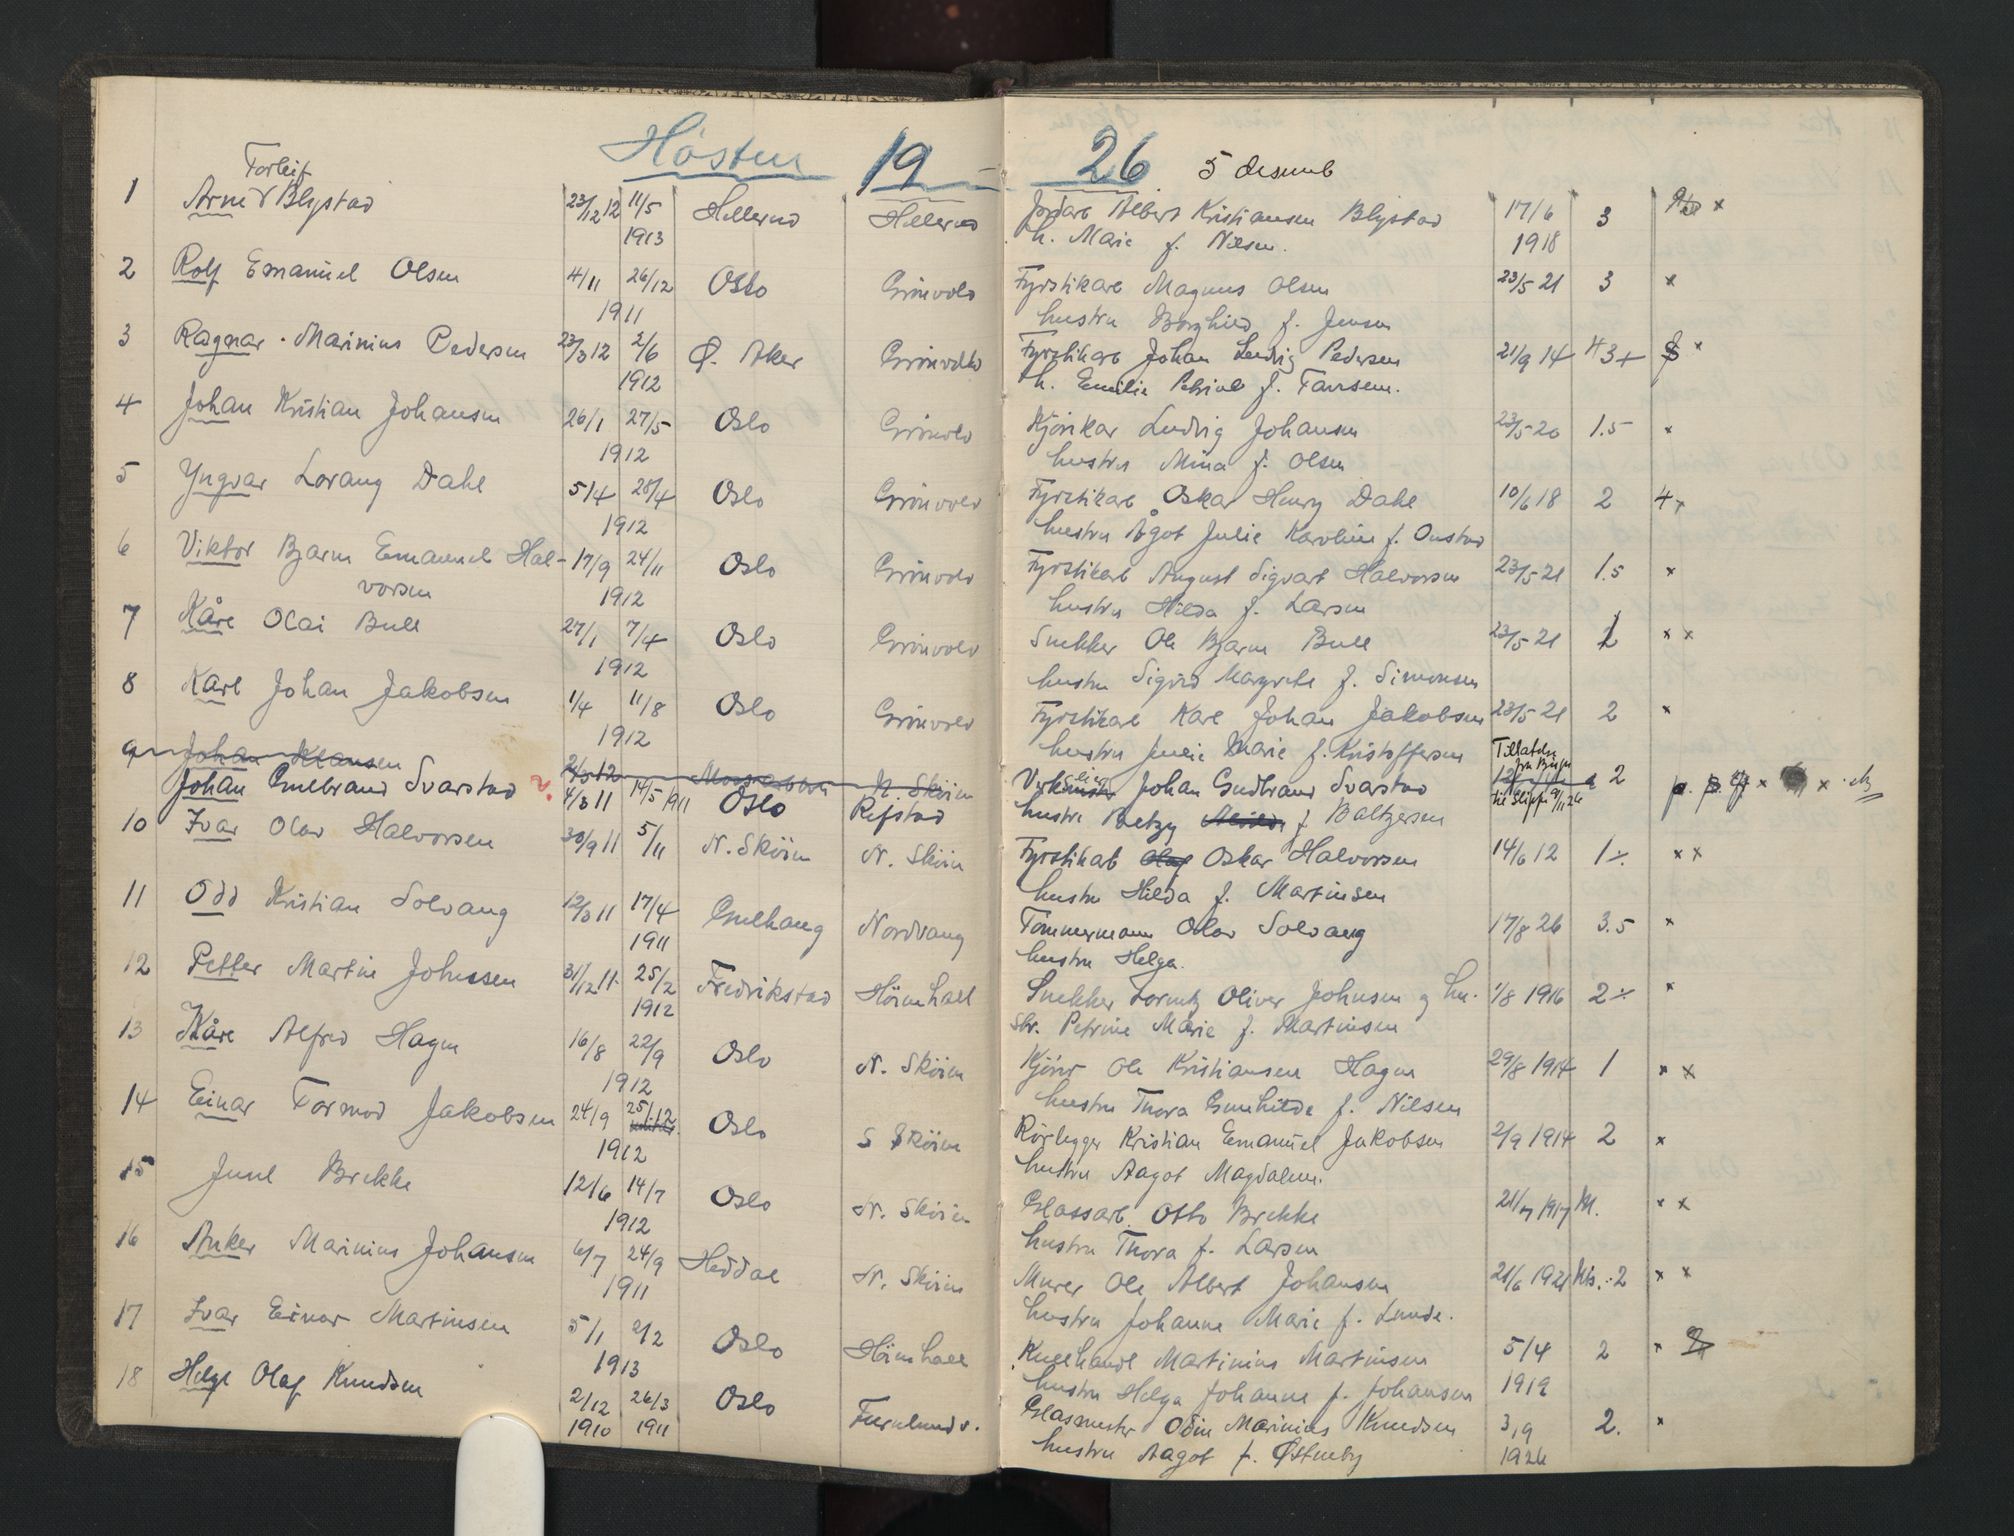 Hösten 19 26 5 desemb
Torleif
1 Arne Blystad 23/12 12 11/5 Hellerud Hellerud Jordarb Albert Kristiansen Blystad 17/6 3 x
1913 h. Marie f. Nilsen. 1918
2 Rolf Emanuel Olsen 4/11 26/12 Oslo Grönvold Fyrstikarb Magnus Olsen 23/5 21 3 x
1911 hustru Borghild f. Jensen
3 Ragnar Marinius Pedersen 23/3 12 2/6 Ø. Aker Grönvold Fyrstikarb Johan Ludvig Pedersen 21/9 14 3+ x
1912 h. Emilie f.
4 Johan Kristian Johansen 26/1 27/5 Oslo Grönvold Kjörekar Ludvig Johansen 23/5 20 1.5 x
1912 hustru Mina f. Olsen
5 Yngvar Lorang Dahl 5/4 28/4 Oslo Grönvold Fyrstikarb Oskar Henry Dahl 10/6 18 2 4 x
1912 hustru Ågot Julie Karoline f. Onstad
6 Viktor Bjarne Emanuel Hal- 17/9 24/11 Oslo Grönvold Fyrstikarb August Sigvart Halvorsen 23/5 21 1.5 x
vorsen 1912 hustru Hilda f. Larsen
7 Kåre Olai Bull 27/1 7/4 Oslo Grönvold Snekker Ole Bjarne Bull 23/5 21 2 x x
1912 hustru Sigrid Margrethe f. Simonsen
8 Karl Johan Jakobsen 1/4 11/8 Oslo Grönvold Fyrstikarb Karl Johan Jakobsen 23/5 21 2 x
1912 hustru Julie Marie f. Kristoffersen Tillatelse
9 Johan Klausen 2/3 12 N. Sköien fra Bispen
Johan Gulbrand Svarstad 4/3 11 14/5 1911 Oslo Refstad Johan Gudbrand Svarstad 2 x x
hustru Betzy f. Baltzersen
10 Ivar Olav Halvorsen 30/9 11 5/11 N. Sköien N. Sköien Fyrstikarb Oskar Halvorsen 14/6 12 1 x x
hustru Hilda f. Martinsen
11 Odd Kristian Solvang 12/3 11 17/4 Gulhaug Nordvang Tömmermann Olav Solvang 17/8 26 3.5 x
1911 hustru Helga.
12 Petter Martin Johnsen 31/12 11 25/2 Fredrikstad Höienhall Snekker Oliver Johnsen og hu- 1/8 1916 2 x
1912 str. Petrine Marie f. Martinsen
13 Kåre Alfred Hagen 16/8 22/9 Oslo N. Sköien Kjörer Ole Kristiansen Hagen 29/8 1914 1 x x
1912 hustru Thora Gunhilde f. Nilsen
14 Einar Tormod Jakobsen 24/9 25/12 Oslo S Sköien Rörlegger Kristian Emanuel Jakobsen 2/9 1914 2 x
1912 hustru Aagot Magdalene.
15 Juul Brekke 12/6 14/7 Oslo N. Sköien Glassarb. Otto Brekke 21/7 1917 M. x x
1912 hustru Thora f. Larsen
16 Anker Marinius Johansen 6/7 24/9 Heddal N. Sköien Murer Ole Albert Johansen 21/6 1921 2 x x
1911 hustru Johanne Marie f. Lunde.
17 Ivar Einar Martinsen 5/1 2/2 Oslo Höienhall Kullhandl Martinius Martinsen 5/4 2 x
1913 hustru Helga Johanne f. Johansen 1919
18 Helge Olaf Knudsen 2/12 26/3 Oslo Furulund v. Glasmester Odin Marinius Knudsen 3/9 2. x
1910 1911 hustru Aagot f. Østenby 1926